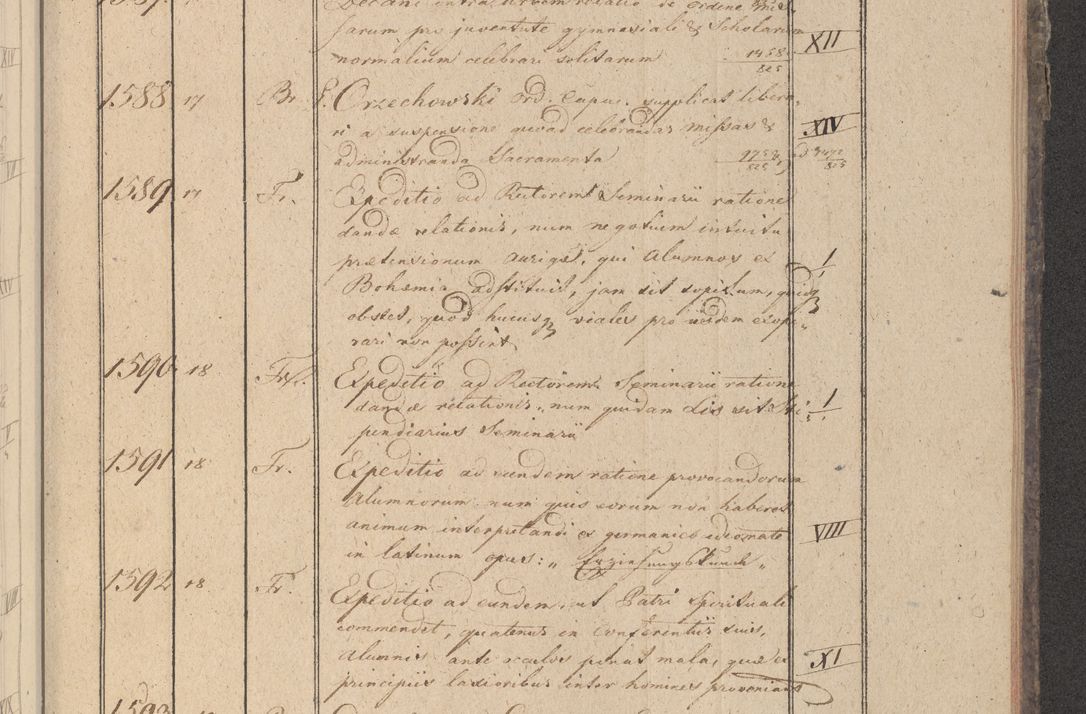 Decani intra urbem relatio de ordine mis-
sarum pro juventute gymnasiali & Scholarum
normalium celebrari solitarum 1458/825 XII
1588 17 Br. P. Orzechowski Ord. Capuc. supplicat libera-
ri a suspensione quoad celebrandas Missas & XIV
administranda Sacramenta
1589 17 Fr. Expeditio ad Rectorem Seminarii ratione
dandæ relationis, num negotium intuitu
prætensionum aurigæ, qui Alumnos ex 1
Bohemia adstituit, jam sit sopitum, quidq
obstet, quod hucusq viales pro iisdem exope-
rari non possint
1590 18 Fr. Expeditio ad Rectorem Seminarii ratione
dandæ relationis, num quidam Lis sit Sti- 1
pendiarius Seminarii
1591 18 Fr. Expeditio ad eundem ratione provocandorum
Alumnorum num quis eorum non haberet
animum interpretandi ex germanico idiomate VIII
in latinum opus: „ Erziehungskunde „
1592 18 Fr. Expeditio ad eundem, ut Patri Spirituali
commendet, quatenus in Conferentiis suis,
Alumnis ante oculos ponat mala, quæ ex XI
principiis laxioribus inter homines proveniant
1593